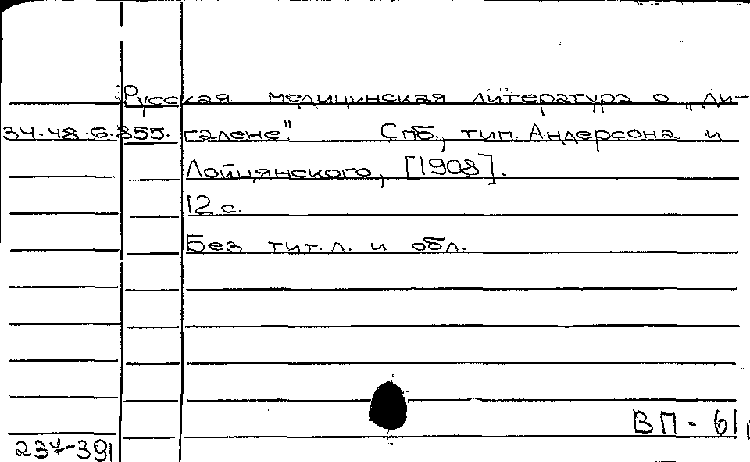 Русская медицинская литература о „Ли-
34.48.6.355. галене". Спб., тип. Андерсона и
Лойцянского, [1908].
12 с.
Без тит. л. и обл.
ВП - 61
237-391